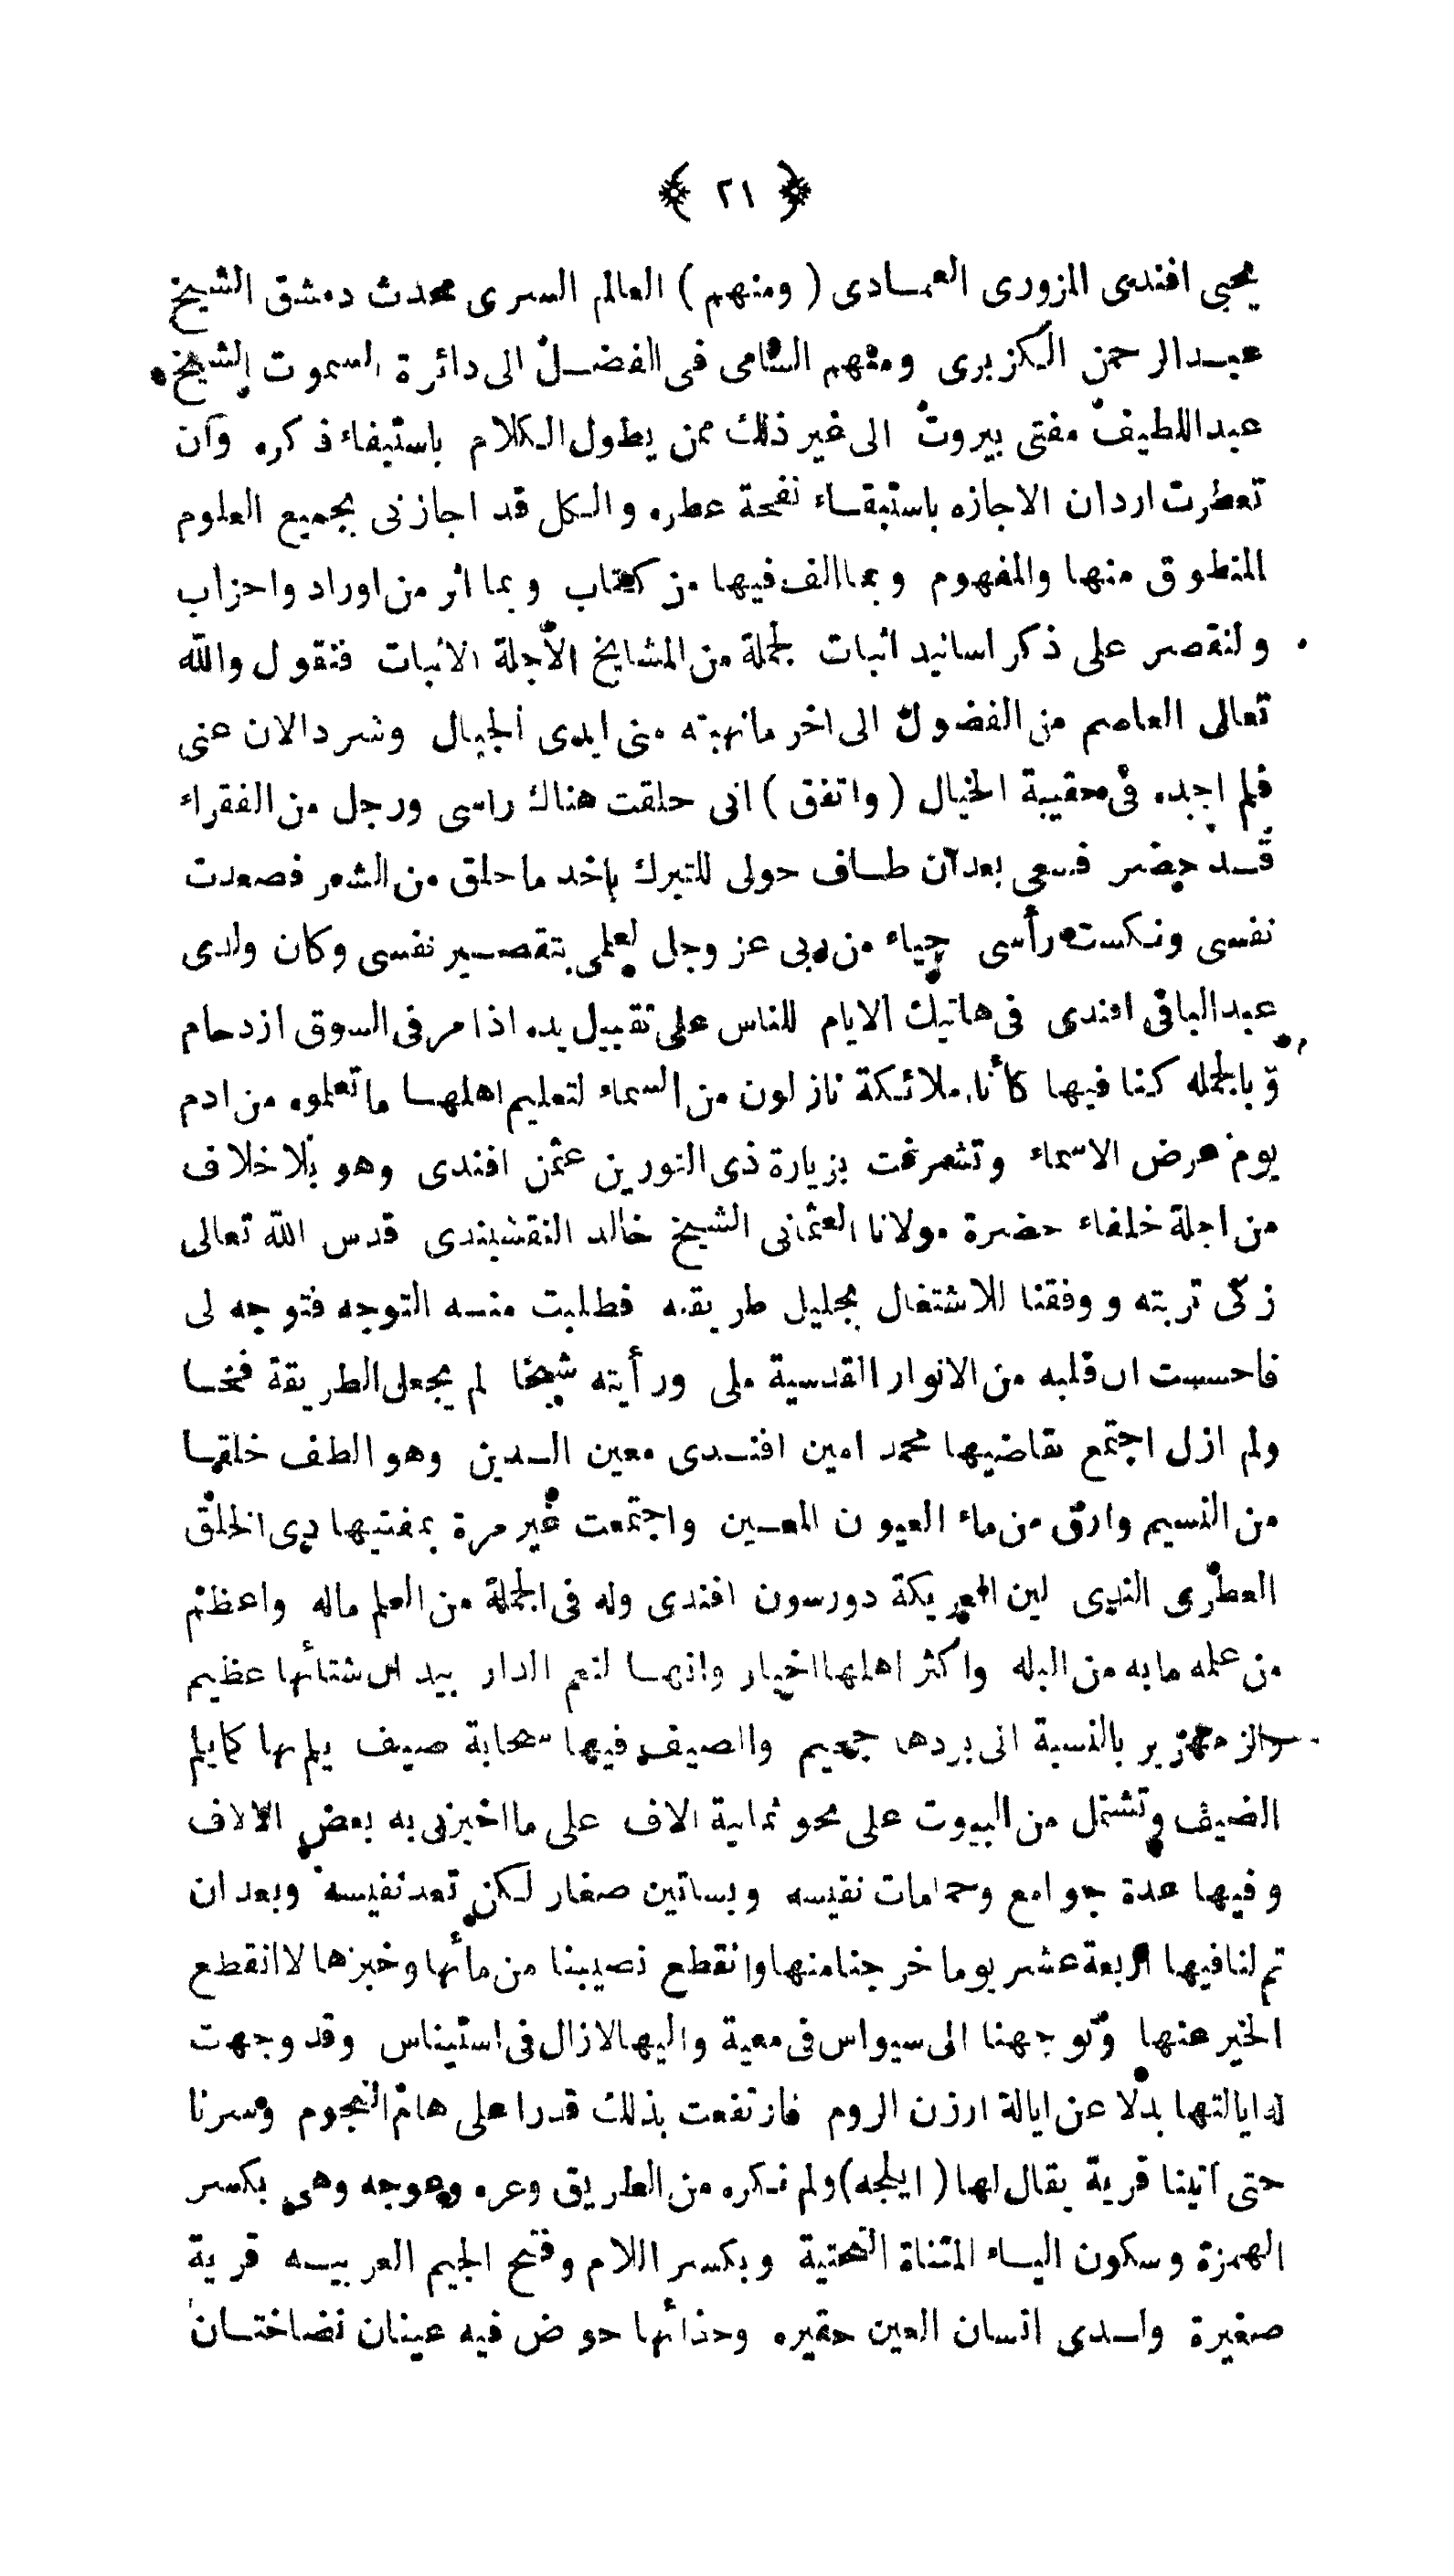 ﴿ ٢١ ﴾
يحيى افندى المزورى العمادى ( ومنهم ) العالم السرى محدث دمشق الشيخ
عبدالرحمن الكزبرى ومنهم السامى فى الفضل الى دائرة السموت الشيخ
عبداللطيف مفتى بيروت الى غير ذلك ممن يطول الكلام باستيفاء ذكره وان
تعطرت اردان الاجازه باستبقاء نفحة عطره والكل قد اجازنى بجميع العلوم
المنطوق منها والمفهوم وبما الف فيها من كتاب وبما اثر من اوراد واحزاب
ولنقصر على ذكر اسانيد اثبات لجملة من المشايخ الاجلة الاثبات فنقول والله
تعالى العاصم من الفضول الى اخر مانهبته منى ايدى الجبال وشرد الان عنى
فلم اجده فى حقيبة الخيال ( واتفق ) انى حلقت هناك راسى ورجل من الفقراء
قد حضر فسعى بعد ان طاف حولى للتبرك باخد ما حلق من الشعر فصعدت
نفسى ونكست رأسى حياء من ربى عز وجل لعلمى بتقصير نفسى وكان ولدى
عبدالباقى افندى فى هاتيك الايام للناس على تقبيل يده اذا مر فى السوق ازدحام
وبالجمله كنا فيها كأنا ملائكة نازلون من السماء لتعليم اهلها ما تعلموه من ادم
يوم عرض الاسماء وتشرفت بزيارة ذى النورين عثمن افندى وهو بلا خلاف
من اجلة خلفاء حضرة مولانا العثمانى الشيخ خالد النقشبندى قدس الله تعالى
زكى تربته ووفقنا للاشتغال بجليل طريقه فطلبت منه التوجه فتوجه لى
فاحسست ان قلبه من الانوار القدسية ملى ورأيته شيخا لم يجعل الطريقة فخا
ولم ازل اجتمع بقاضيها محمد امين افندى معين الدين وهو الطف خلقا
من النسيم وارق من ماء العيون المعين واجتمعت غير مرة بمفتيها ذى الخلق
العطرى الندى لين العريكة دورسون افندى وله فى الجملة من العلم ماله واعظم
من علمه ما به من البله واكثر اهلها اخيار وانها لنعم الدار بيد ان شتائها عظيم
والزمهرير بالنسبة الى بردها جحيم والصيف فيها سحابة صيف يلم بها كما يلم
الضيف وتشتمل من البيوت على نحو ثمانية الاف على ما اخبرنى به بعض الالاف
وفيها عدة جوامع وحمامات نفيسه وبساتين صغار لكن تعد نفيسه وبعد ان
تم لنا فيها اربعة عشر يوما خرجنا منها وانقطع نصيبنا من مائها وخبزها لا انقطع
الخير عنها وتوجهنا الى سيواس فى معية واليها لازال فى استيناس وقد وجهت
له ايالتها بدلا عن ايالة ارزن الروم فارتفعت بذلك قدرا على هام النجوم وسرنا
حتى اتينا قرية يقال لها ( ايلجه ) ولم نكره من الطريق وعره وعوجه وهى بكسر
الهمزة وسكون الياء المثناة التحتية وبكسر اللام وفتح الجيم العربيه قرية
صغيرة ولدى انسان العين حقيره وحذائها حوض فيه عينان نضاختان